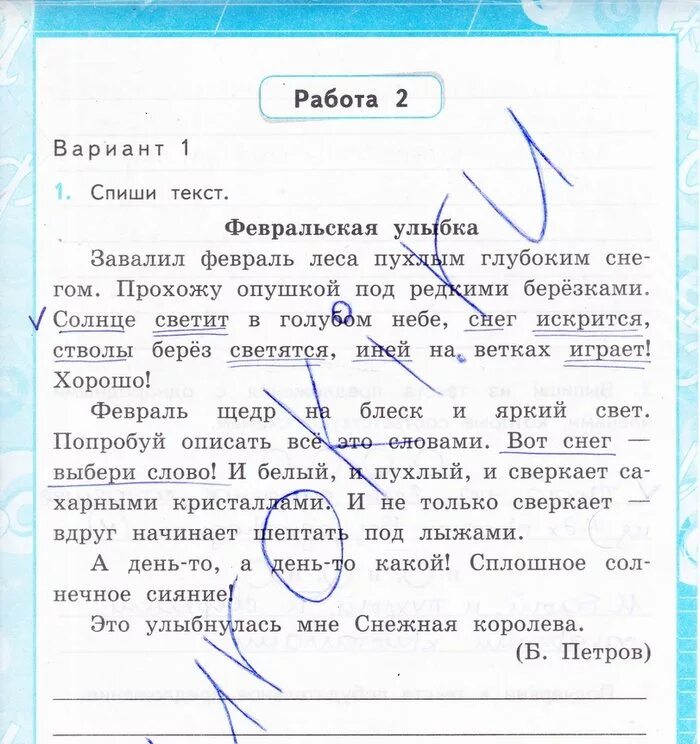 Работа 2
Вариант 1
1. Спиши текст.
Февральская улыбка
Завалил февраль леса пухлым глубоким сне-
гом. Прохожу опушкой под редкими берёзками.
Солнце светит в голубом небе, снег искрится,
стволы берёз светятся, иней на ветках играет!
Хорошо!
Февраль щедр на блеск и яркий свет.
Попробуй описать всё это словами. Вот снег —
выбери слово! И белый, и пухлый, и сверкает са-
харными кристаллами. И не только сверкает —
вдруг начинает шептать под лыжами.
А день-то, а день-то какой! Сплошное сол-
нечное сияние!
Это улыбнулась мне Снежная королева.
(Б. Петров)